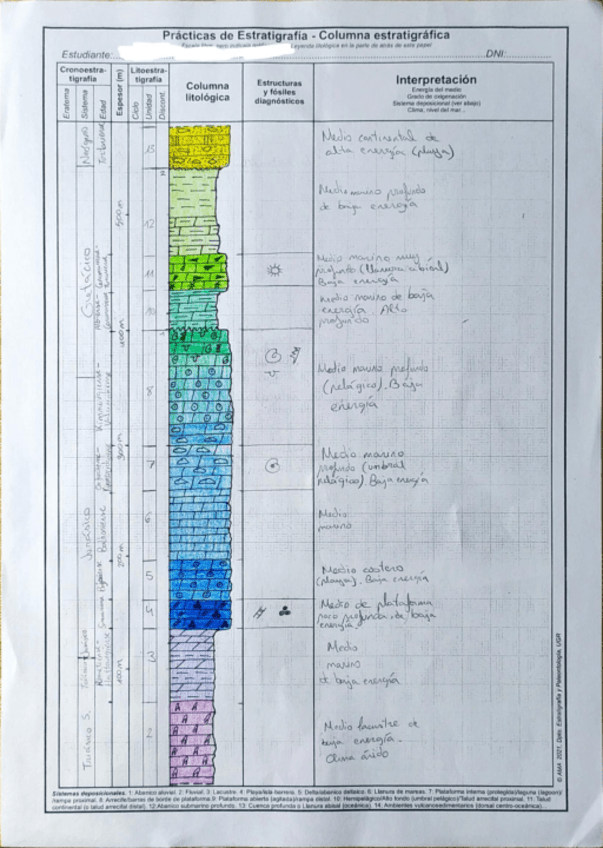 Prácticas de Estratigrafía - Columna estratigráfica
Leyenda litológica en la parte de atrás de este papel
Estudiante:
DNI:
Cronoestra-
tigrafía
Eratema
Sistema
Edad
Espesor (m)
Litoestra-
tigrafía
Ciclo
Unidad
Discont.
Columna
litológica
Estructuras
y fósiles
diagnósticos
Interpretación
Energía del medio
Grado de oxigenación
Sistema deposicional (ver abajo)
Clima, nivel del mar...
Neógeno
13
Medio continental de
alta energía (playa)
500 m
12
Medio marino profundo
de baja energía
Cretácico
11
Medio marino muy
profundo (llanura abisal)
Baja energía
10
Medio marino de baja
energía. Alto
profundo
400 m
8
Medio marino profundo
(pelágico). Baja
energía
300 m
7
Medio marino
profundo (umbral
pelágico). Baja energía
Jurásico
6
Medio
marino
200 m
5
Medio costero
(playa). Baja energía
4
Medio de plataforma
poco profunda de baja
energía
3
Medio
marino
de baja energía
100 m
Triásico S.
2
Medio lacustre de
baja energía.
Clima árido
© AMA, 2021. Dpto. Estratigrafía y Paleontología, UGR
Sistemas deposicionales. 1: Abanico aluvial. 2: Fluvial. 3: Lacustre. 4: Playa/isla barrera. 5: Delta/abanico deltaico. 6: Llanura de mareas. 7: Plataforma interna (protegida)/laguna (lagoon)/
rampa proximal. 8: Arrecife/barras de borde de plataforma. 9: Plataforma abierta (agitada)/rampa distal. 10: Hemipelágico/Alto fondo (umbral pelágico)/Talud arrecifal proximal. 11: Talud
continental (o talud arrecifal distal). 12: Abanico submarino profundo. 13: Cuenca profunda o Llanura abisal (oceánica). 14: Ambientes vulcanosedimentarios (dorsal centro-oceánica)...